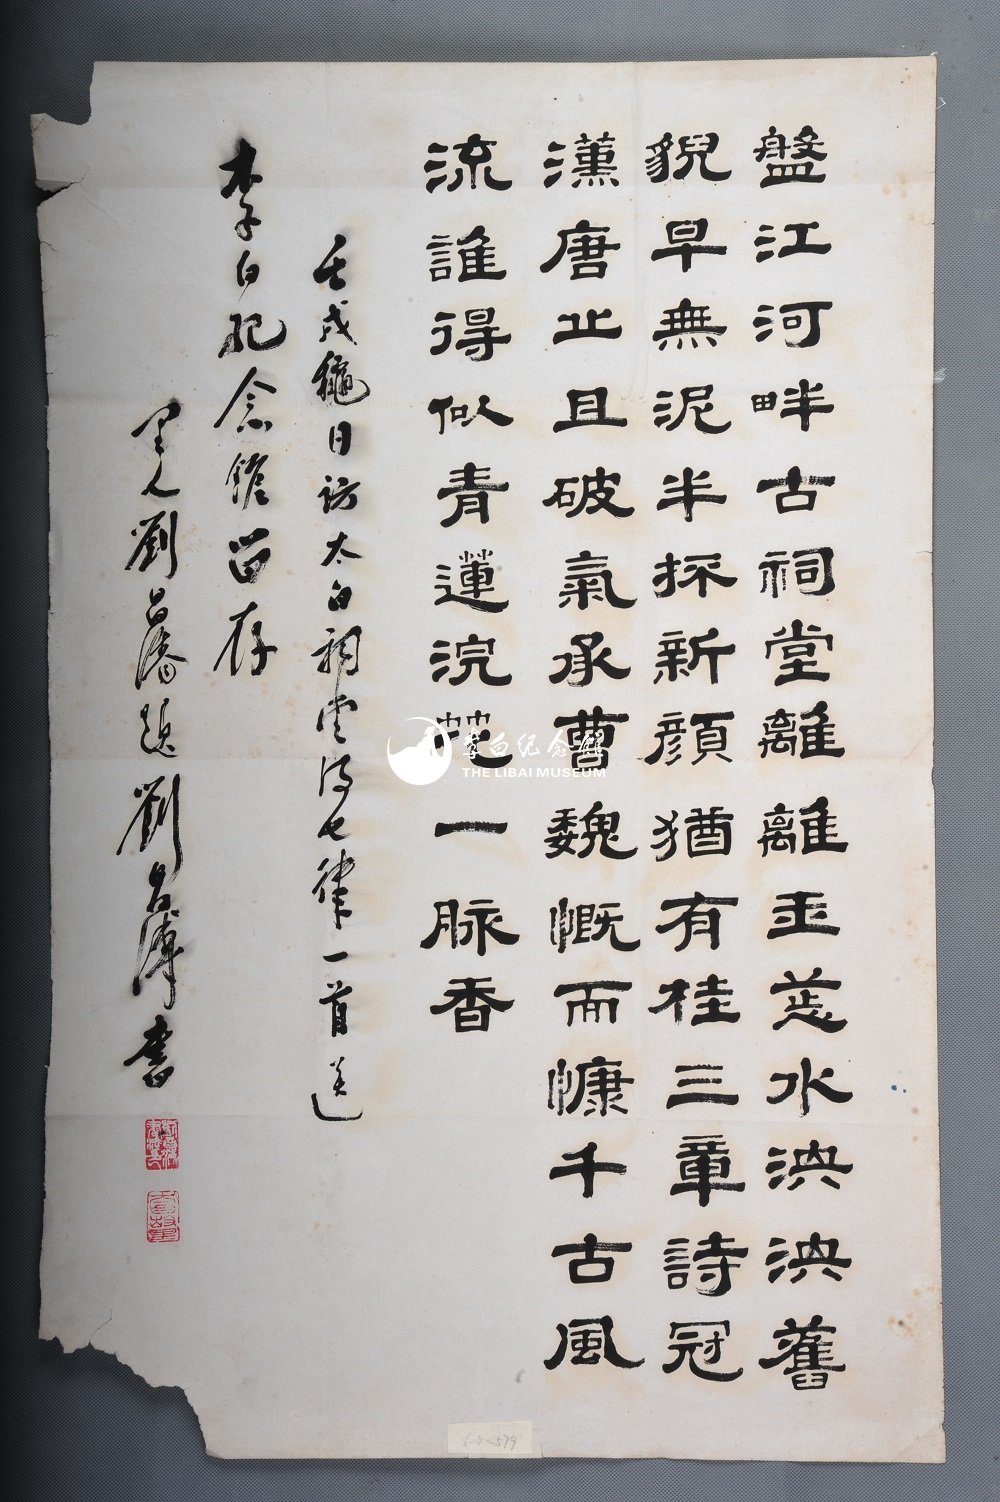 盤江河畔古祠堂離離玉蕊水泱泱舊
貌早無泥半抔新顔猶有桂三章詩冠
漢唐止且破氣承曹魏慨而慷千古風
流誰得似青蓮浣花一脉香
壬戌龝日訪太白祠堂得七律一首送
李白紀念館留存
里人劉吕藩題劉吕溥書
李白纪念館
THE LIBAI MUSEUM